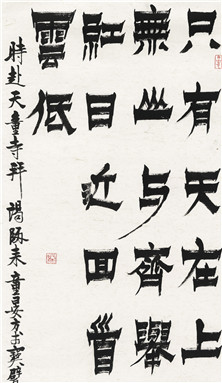 只有天在上
無山与齊舉
紅日近回首
雲低
時赴天童寺拜謁